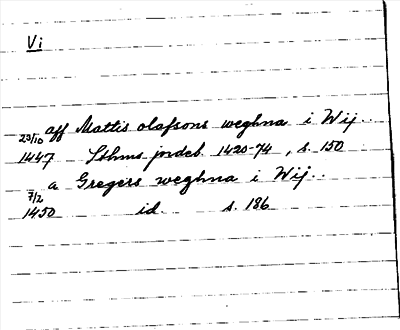 Vi
aff Mattis olafsons weghna i Wij..
23/10
1447 Sthms jordeb. 1420-74, s. 150
a Gregers weghna i Wij..
7/2
1450 id. s. 186